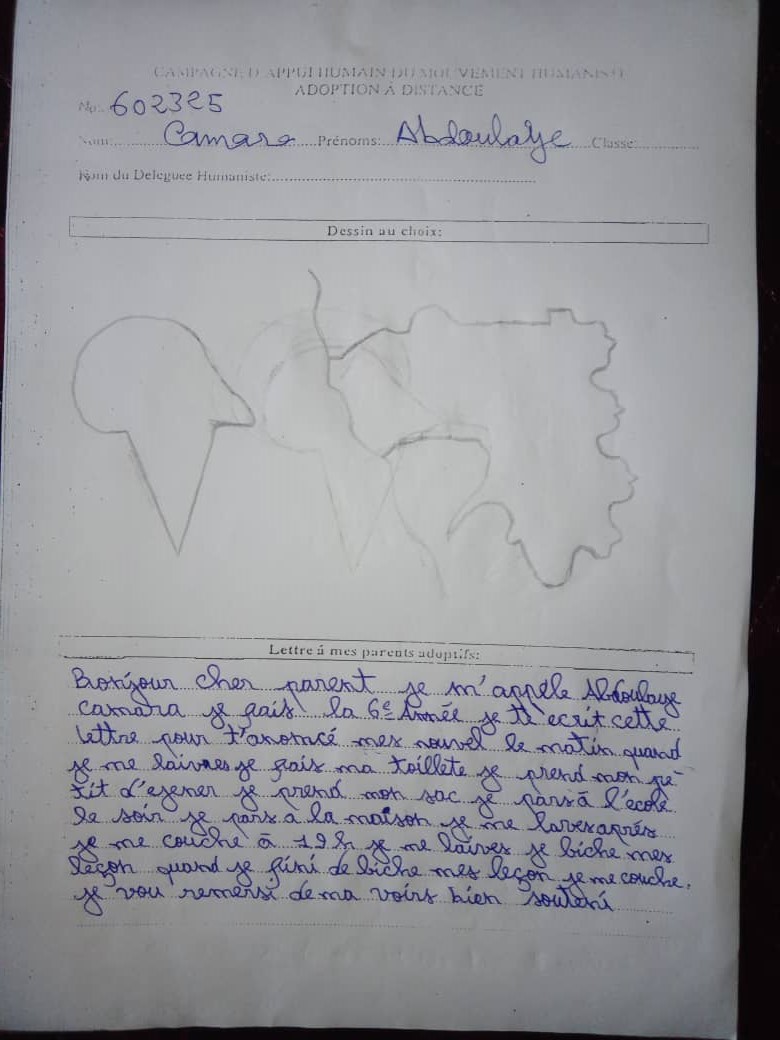 CAMPAGNE D'APPUI HUMAIN DU MOUVEMENT HUMANISTE
ADOPTION Á DISTANCE
No: 602325
Nom: Camara Prénoms: Abdoulaye Classe:
Nom du Deleguee Humaniste:
Dessin au choix:
Lettre á mes parents adoptifs:
Bonjour cher parent je m'appèle Abdoulaye
camara je fais la 6e Année je te ecrit cette
lettre pour t'anoncé mes nouvel le matin quand
je me laives je fais ma toillete je prend mon pe-
tit d'ejener je prend mon sac je pars à l'ecole
le soir je pars a la maison je me laves après
je me couche à 19h je me laives je biche mes
leçon quand je fini de biche mes leçon je me couche.
je vou remersi de ma voirs bien souteni